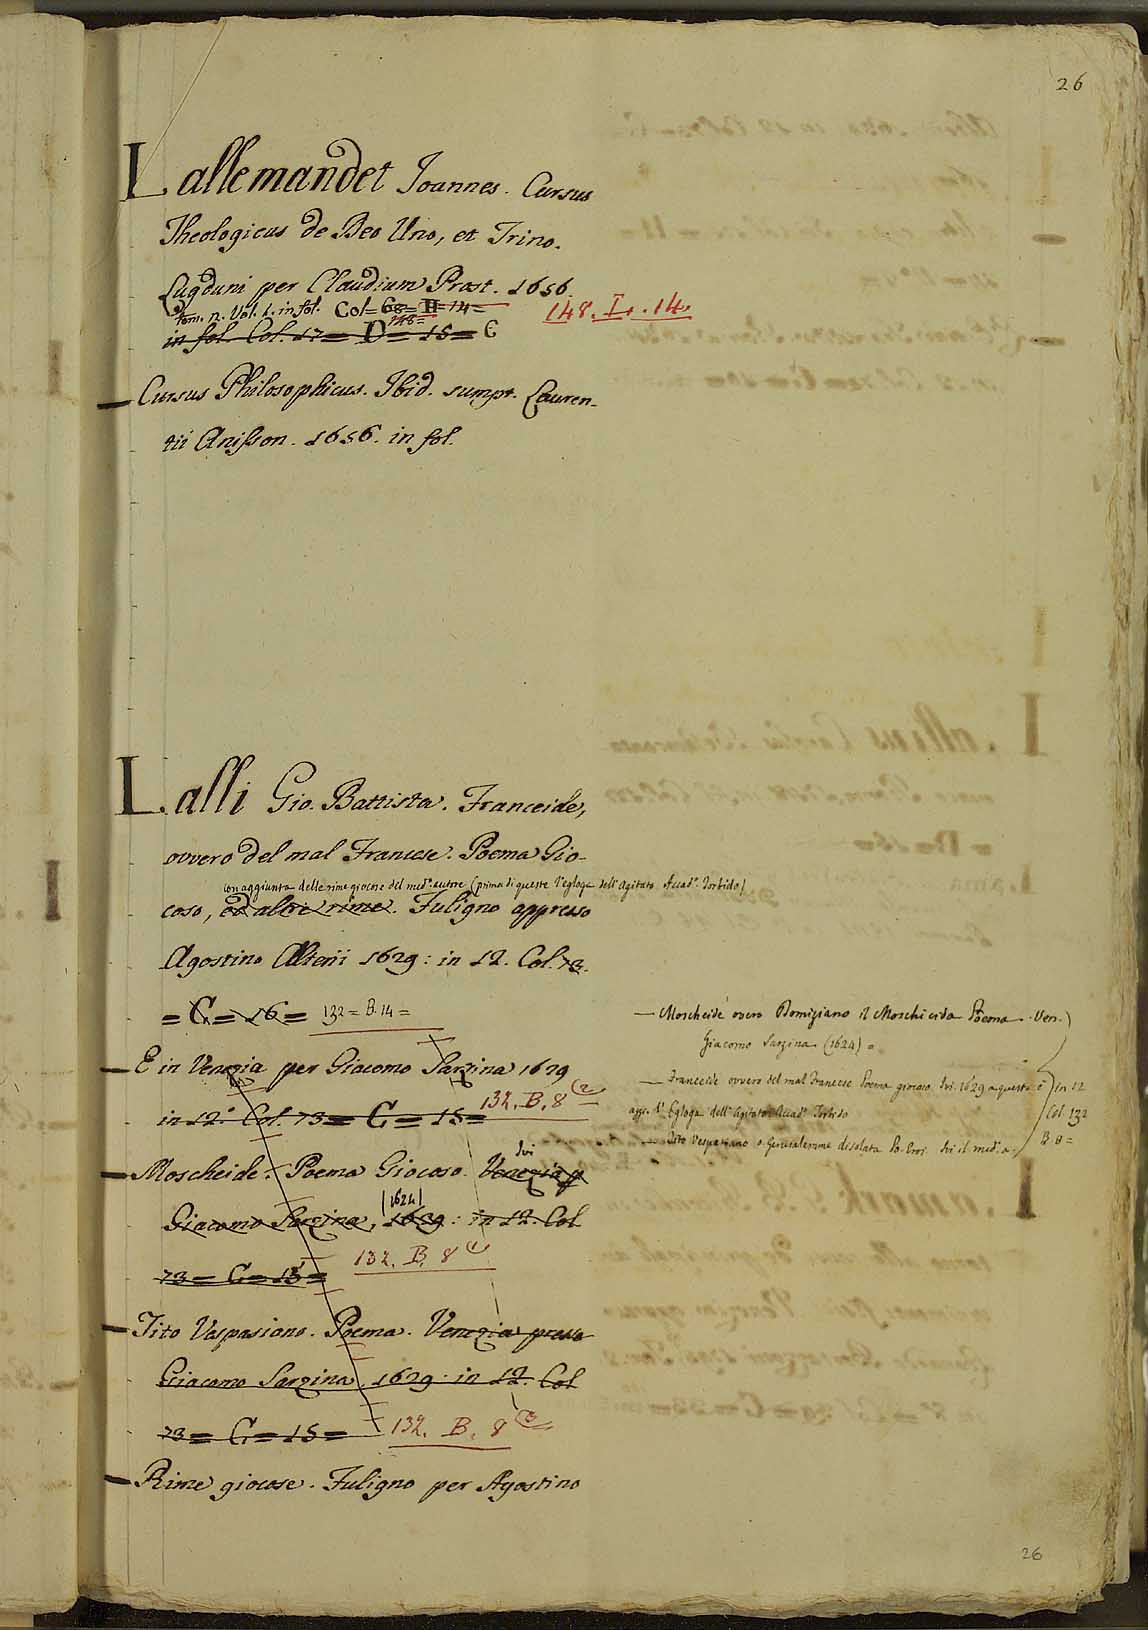 26
Lallemandet Joannes. Cursus
Theologicus de Deo Uno, et Trino.
Lugduni per Claudium Prost. 1656.
Tom. n. Vol. 1. in fol. Col= 68= H= 14= 148. I. 14.
148=
in fol. Col. 17= D= 15= C
Cursus Philosophicus. Ibid. sumpt. Lauren-
tii Anisson. 1656. in fol.
Lalli Gio. Battista. Franceide,
ovvero del mal Francese. Poema Gio-
con aggiunta delle rime giocose del med.º autore (prima di queste l'egloga dell'Agitato Accad.º Torbido)
coso, ed altre rime. Fuligno appresso
Agostino Alterii 1629: in 12. Col. 73.
= C= 16= 132= B. 14=
E in Venezia per Giacomo Sarzina 1629
in 12.º Col. 73= C= 15= 132. B. 8 (2
Moscheide. Poema Giocoso. Venezia p
Ivi
Giacomo Sarzina, 1629: in 12. Col
(1624)
73= C= 15= 132. B. 8 (1)
Tito Vespasiano. Poema. Venezia presso
Giacomo Sarzina. 1629: in 12. Col
73= C= 15= 132. B. 8 (3
Rime giocose. Fuligno per Agostino
— Moscheide overo Domiziano il Moschicida Poema. Ven.
Giacomo Sarzina (1624) =
— Franceide ovvero del mal Francese Poema giocoso. Ivi. 1629 a questo è
app. l'Egloga dell'Agitato Accad.º Torbido
— Tito Vespasiano o Gerusalemme disolata Po. Eroi. Ivi il med.º a.
in 12
Col 132
B 8=
26